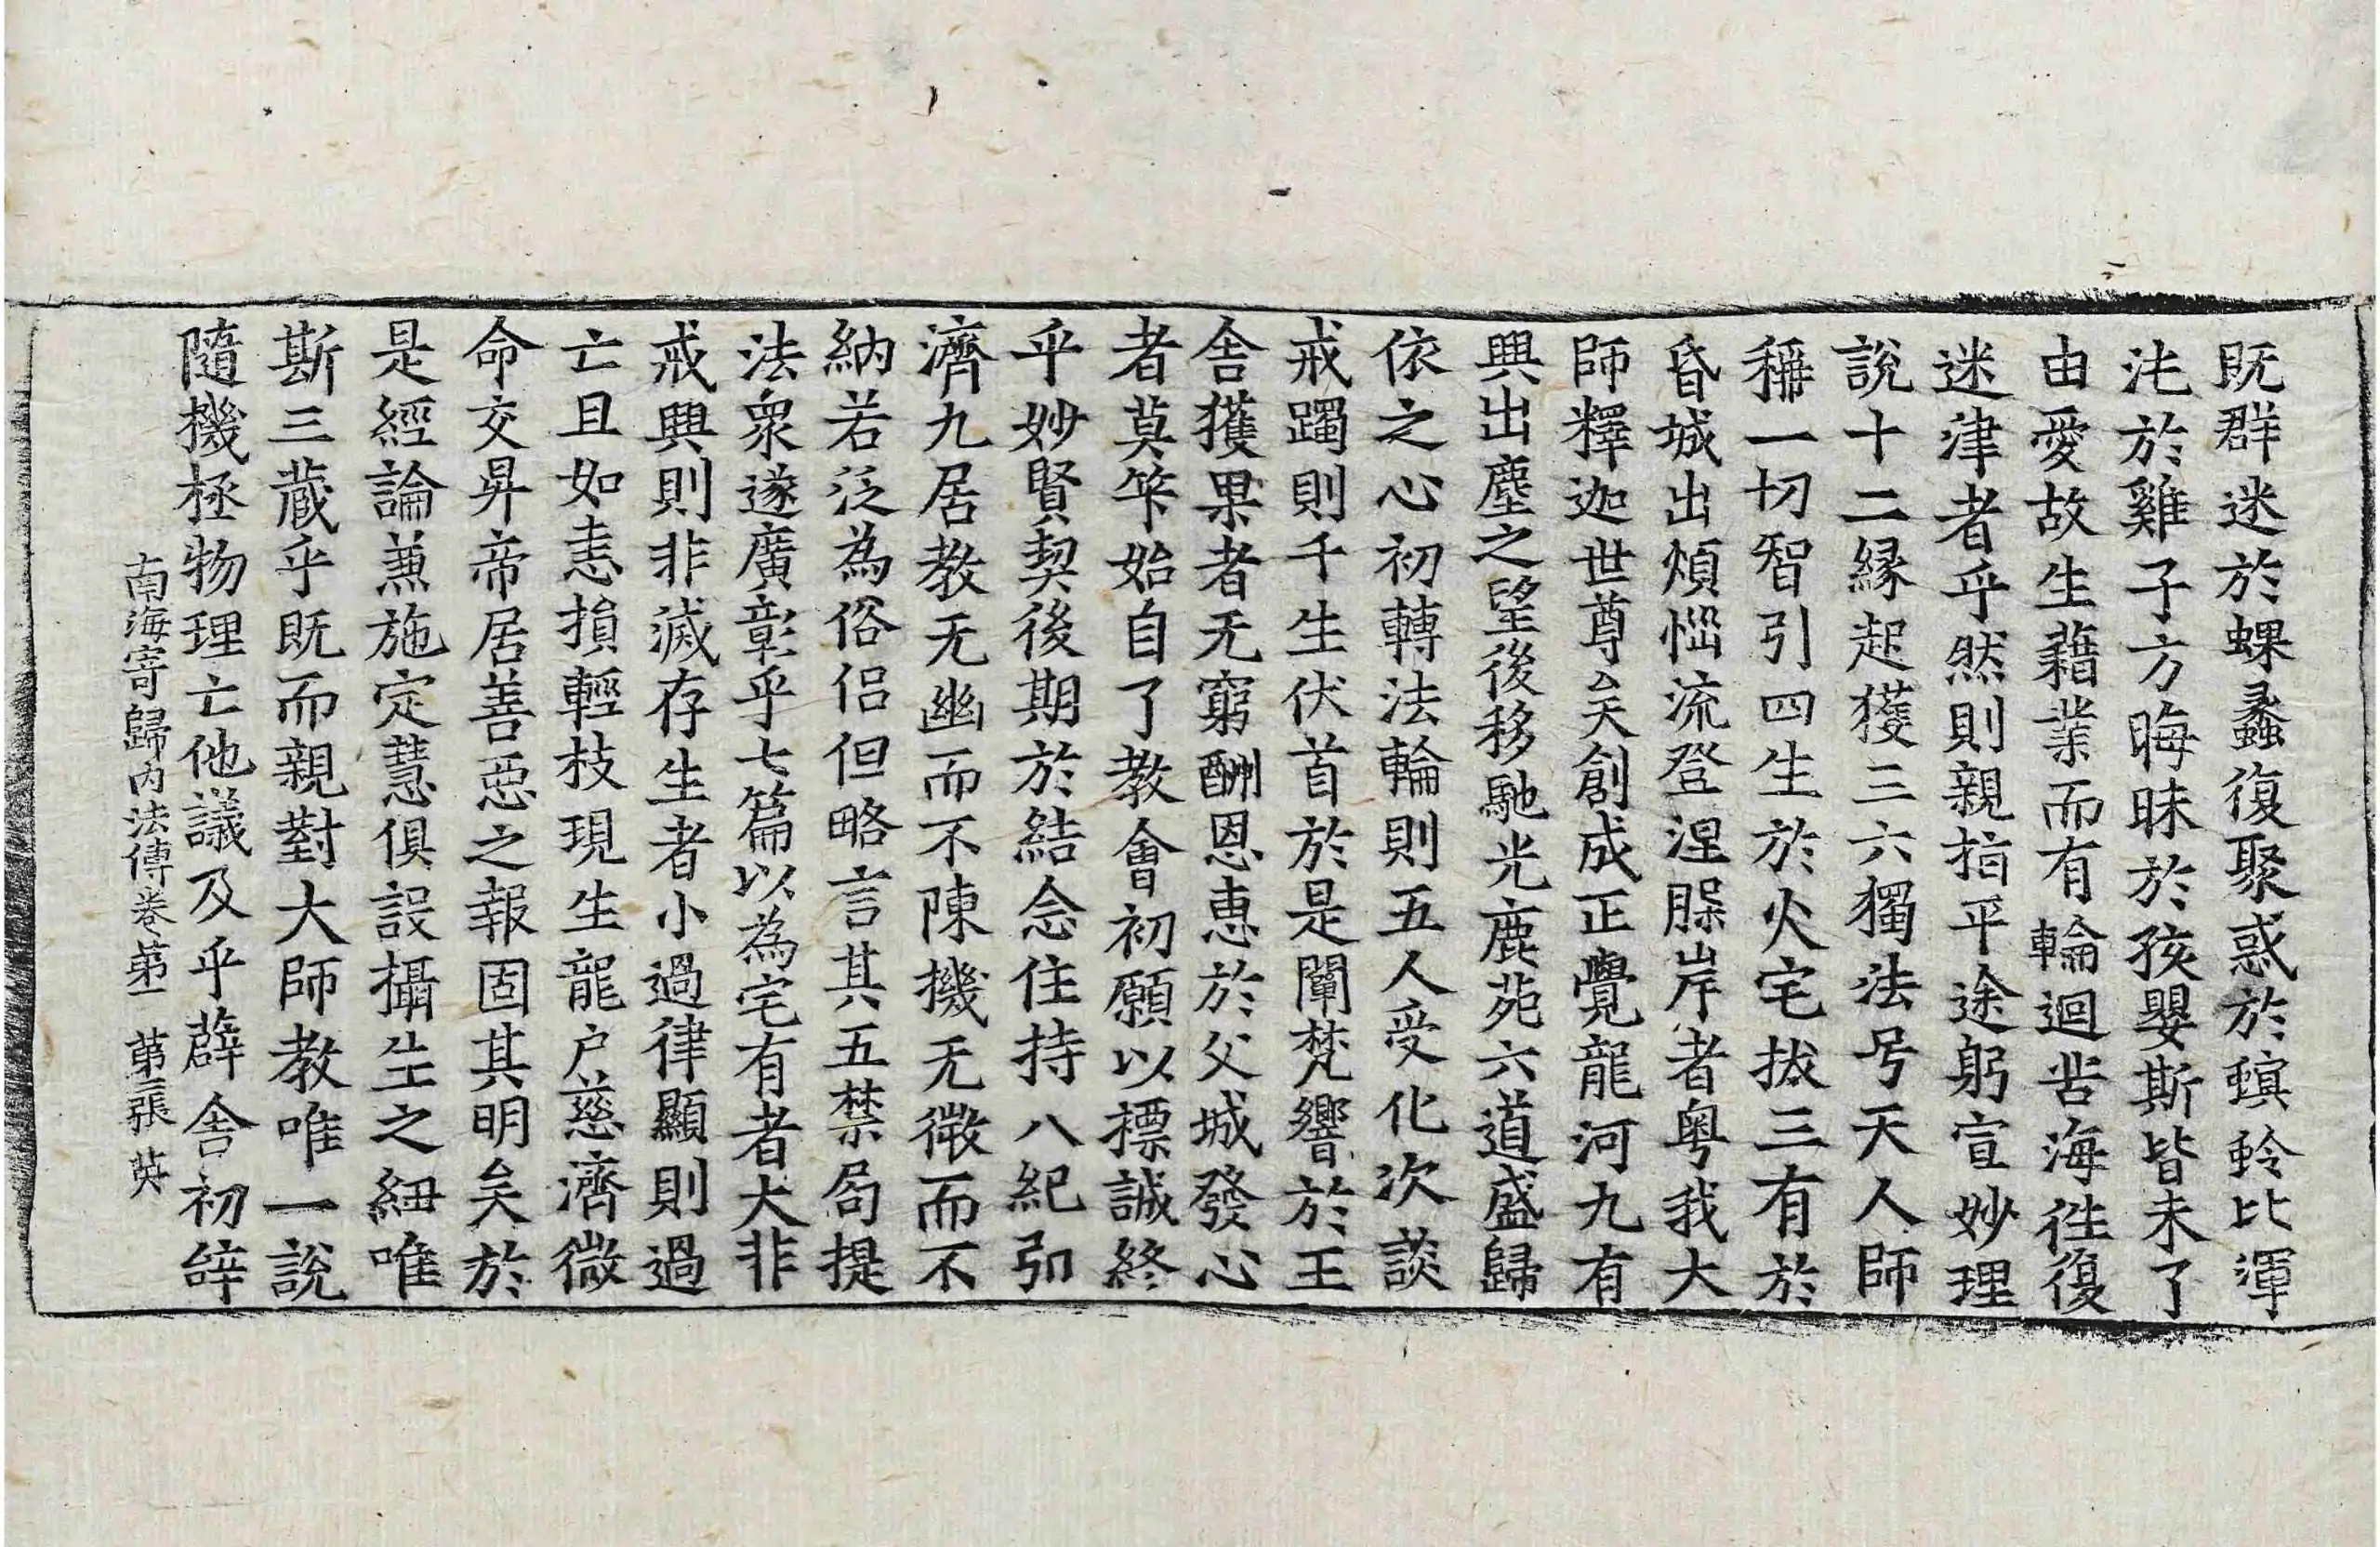 既群迷於蜾蠡復聚惑於螟蛉比渾
沌於雞子方晦昧於孩嬰斯皆未了
由愛故生藉業而有輪迴苦海徃復
迷津者乎然則親指平途躬宣妙理
說十二縁起獲三六獨法号天人師
稱一切智引四生於火宅拔三有於
昏城出煩惱流登涅槃岸者粤我大
師釋迦世尊矣創成正覺龍河九有
興出塵之望後移馳光鹿苑六道盛歸
依之心初轉法輪則五人受化次談
戒躅則千生伏首於是闡梵響於王
舍獲果者无窮酬恩惠於父城發心
者莫筭始自了教會初願以標誠終
乎妙賢契後期於結念住持八紀弘
濟九居教无幽而不陳機无微而不
納若泛為俗侣但略言其五禁局提
法衆遂廣彰乎七篇以為宅有者大非
戒興則非滅存生者小過律顯則過
亡且如恚損輕枝現生龍户慈濟微
命交昇帝居善惡之報固其明矣於
是經論兼施定慧俱設攝生之紐唯
斯三蔵乎既而親對大師教唯一說
隨機拯物理亡他議及乎薜舍初辝
南海寄歸內法傳卷第一　第三張　英